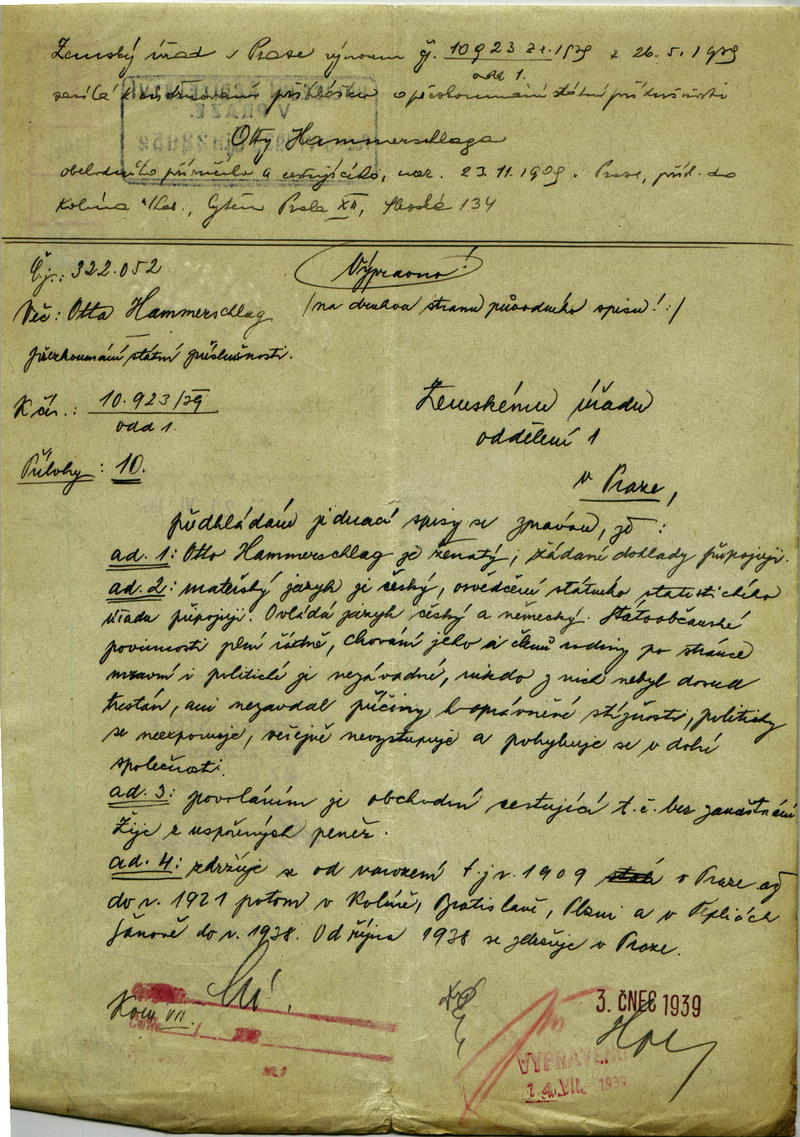 Zemský úřad v Praze výnosem čj. 10923 z r. 1939 z 26.5.1939
odd 1.
zasílá přihlášku o přezkoumání státní příslušnosti
Otty Hammerschlaga
obchodního příručího a cestujícího, nar. 23.11.1909 v Praze, přísl. do
Kolína, bytem Praha XII, Slezská 134
Č.j.: 322.052
Výpravno!
Věc: Otto Hammerschlag
/na druhou stranu původního spisu!:/
přezkoumání státní příslušnosti.
K čís.: 10.923/39
odd 1.
Zemskému úřadu
oddělení 1
Přílohy: 10.
v Praze,
předkládám jednací spisy se zprávou, že:
ad. 1: Otto Hammerschlag je ženatý, žádané doklady připojuji.
ad. 2: mateřský jazyk je český, osvědčení státního statistického
úřadu připojuji. Ovládá jazyk český a německý. Státoobčanské
povinnosti plní řádně, chování jeho a členů rodiny po stránce
mravní i politické je nezávadné, nikdo z nich nebyl dosud
trestán, ani nezavdal příčiny k oprávněné stížnosti, politicky
se neexponuje, veřejně nevystupuje a pohybuje se v dobré
společnosti.
ad. 3: povoláním je obchodní cestující t.č. bez zaměstnání
Žije z uspořených peněz.
ad. 4: zdržuje se od narození t.j. r. 1909 v Praze až
do r. 1921 potom v Kolíně, Bratislavě, Plzni a v Teplicích
Šanově do r. 1938. Od října 1938 se zdržuje v Praze.
3. ČNEC 1939
VYPRAVENO
VII. 1939